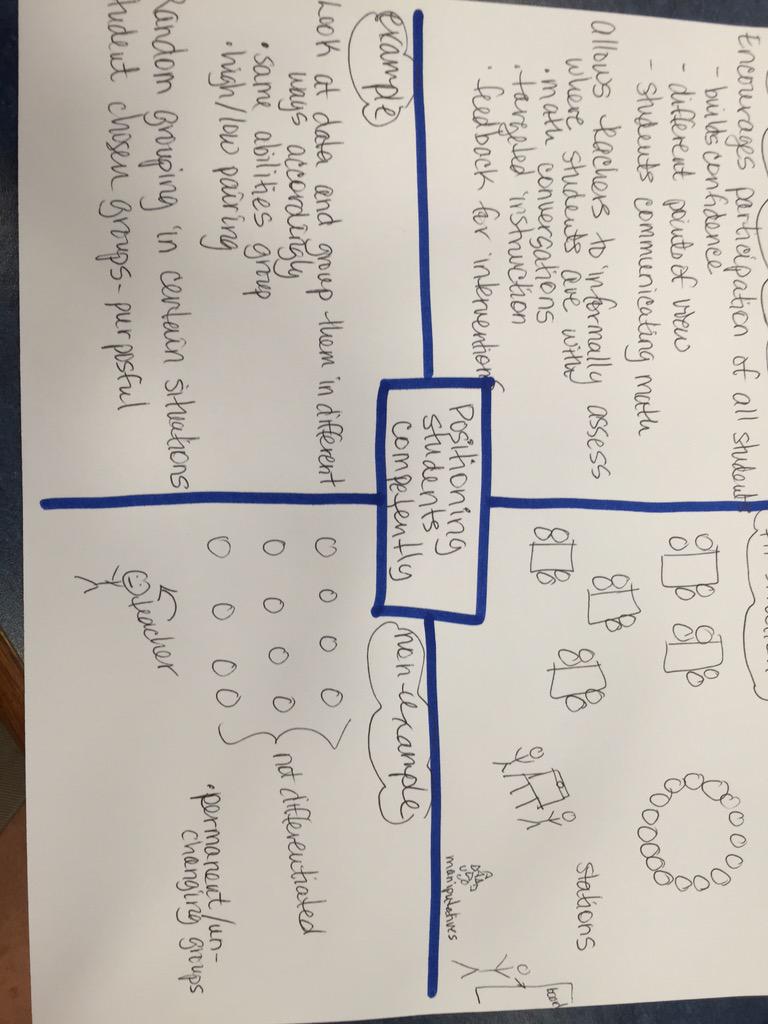 Encourages participation of all students
- builds confidence
- different points of view
- students communicating math
allows teachers to informally assess
where students are with
• math conversations
• targeted instruction
• feedback for interventions
stations
manipulatives
board
Positioning
students
competently
example
Look at data and group them in different
ways accordingly
• same abilities group
• high/low pairing
Random grouping in certain situations
student chosen groups - purposful
non-example
not differentiated
teacher
• permanent/un-
changing groups